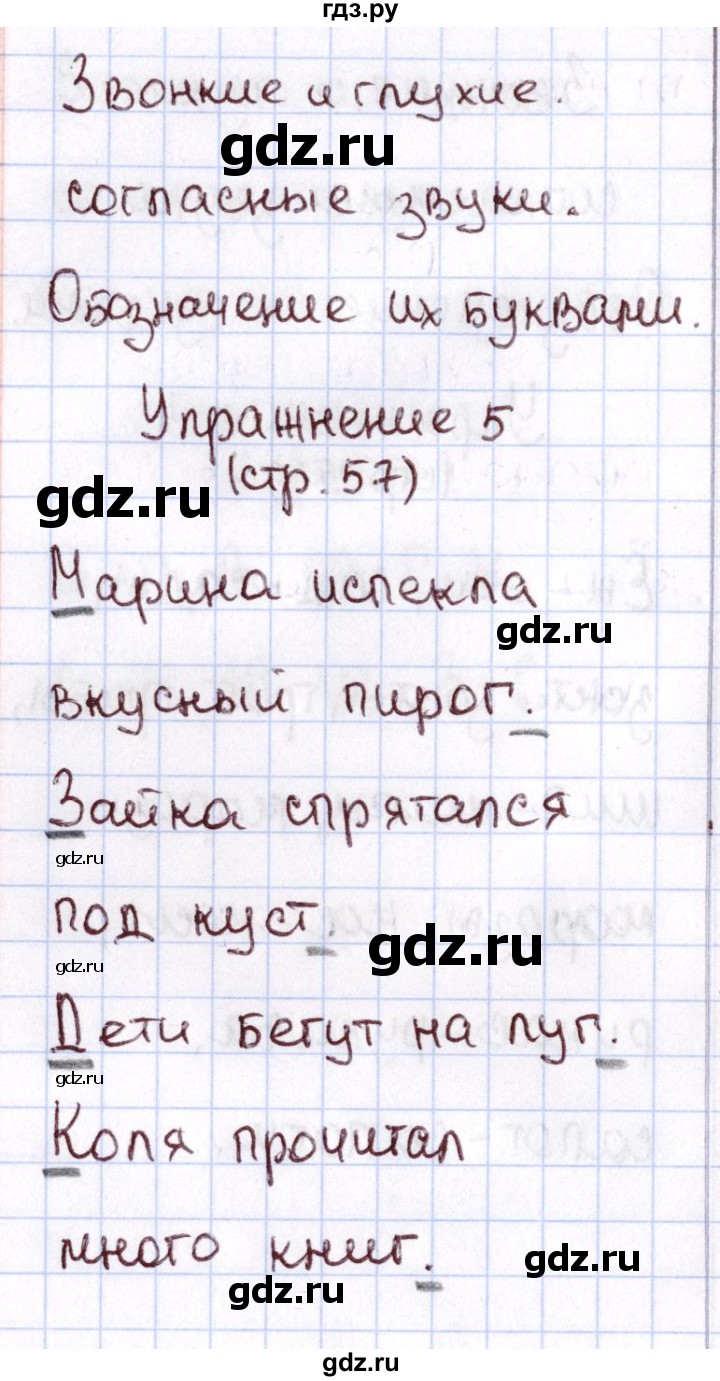 гдз.ру
Звонкие и глухие.
gdz.ru
согласные звуки.
Обозначение их буквами.
Упражнение 5
(стр. 57)
gdz.ru
Марина испекла
gdz.ru
вкусный пирог.
Зайка спрятался
gdz.ru
под куст.
gdz.ru
gdz.ru
Дети бегут на луг.
gdz.ru
Коля прочитал
много книг.
gdz.ru
gdz.ru
gdz.ru